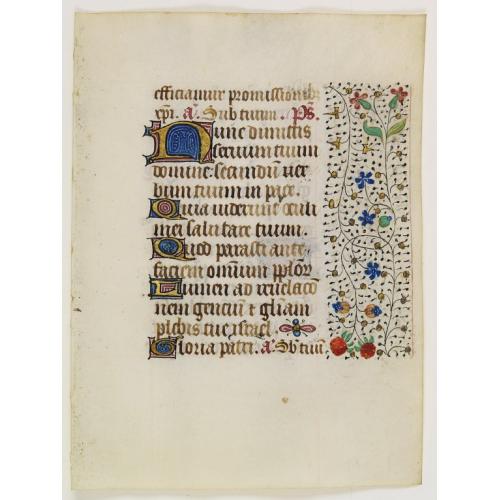 efficiamur promissionib;
xpi. a. Sub tuum. Ps.
Nunc dimittis
servum tuum
domine secundu ver
bum tuum in pace.
Quia viderunt oculi
mei salutare tuum.
Quod parasti ante
faciem omnium pplor
Lumen ad revelaco
nem gencium t gliam
plebis tue israel.
Gloria patri. a. Sb tuu.